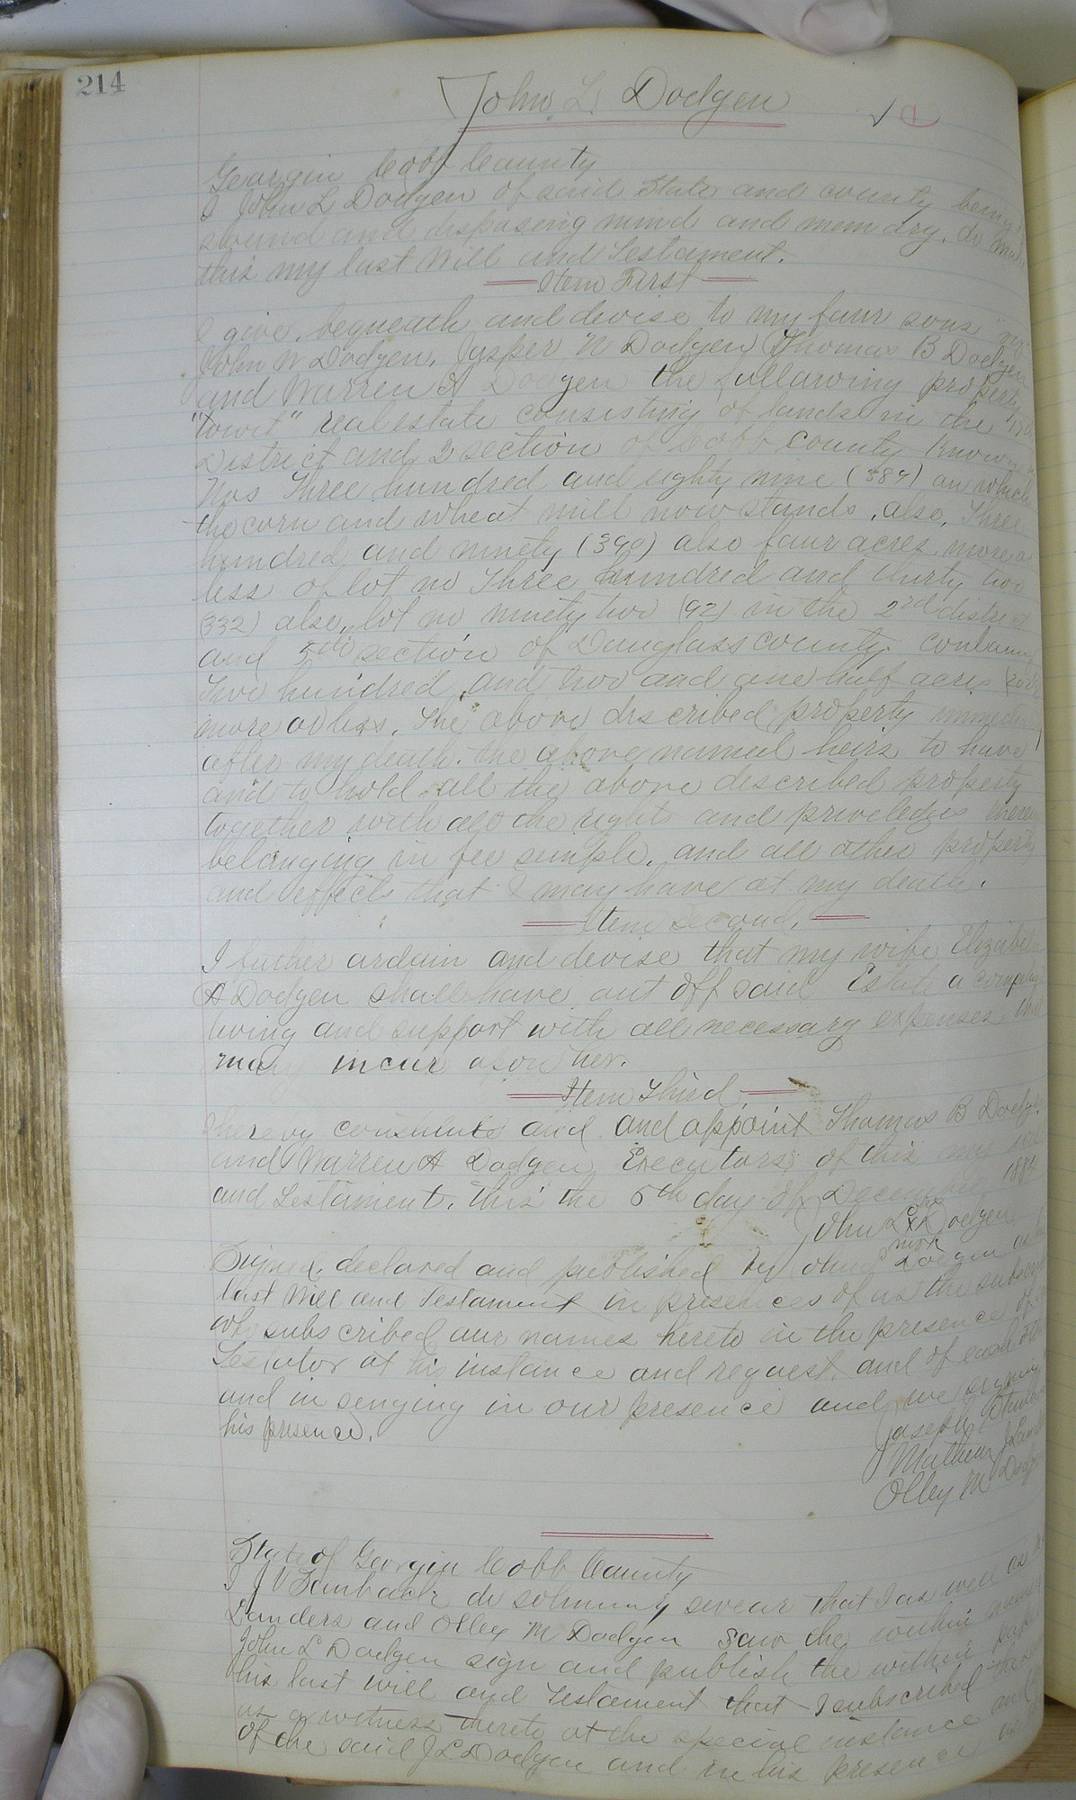 214
John L. Dodgen
Georgia Cobb County
I John L Dodgen of said State and county being
sound and disposing mind and memory, do
this my last Will and Testament.
Item First
I give, bequeath and devise to my four sons
John W Dodgen, Jasper N Dodgen Thomas B Dodgen
and Warren A Dodgen the following property
"towit" real estate consisting of lands in the
District and 2 section of Cobb county Known
Nos Three hundred and eighty nine (389) on which
the corn and wheat mill now stands, also, Three
hundred and ninety (390) also four acres more or
less of lot no Three hundred and thirty two
(332) also, lot no ninety two (92) in the 2nd district
and 5th section of Douglass county
Two hundred and two and one half acres
more or less. The above described property
after my death. the above named heirs to have
and to hold all the above described property
together with all the right and priveledges
belonging in fee simple, and all other property
and effects that I may have at my death.
Item second.
I futher ordain and devise that my wife
A Dodgen shall have out off said Estate a
living and support with all necessary expenses that
may incur upon her.
Item Third
hereby constitute and and appoint Thomas B
and Warren A Dodgen Executors of this my
and Testament. this the 5th day of December
John L X Dodgen
mark
Signed, declared and published by John Dodgen
last Will and Testament in presences of us the
who subscribed our names hereto in the presence of
Testator at his instance and request, and of each
and in senging in our presence and we
his presence.
Joseph
Mathew
Olley M
State of Georgia Cobb County
I J V do solmnly swear that I as well as
Landers and Olley M Dodgen saw the within
John L Dodgen sign and publish the within
his last will and Testament that I subscribed
as a witness thereto at the special instance and
of the said J L Dodgen and in his presence